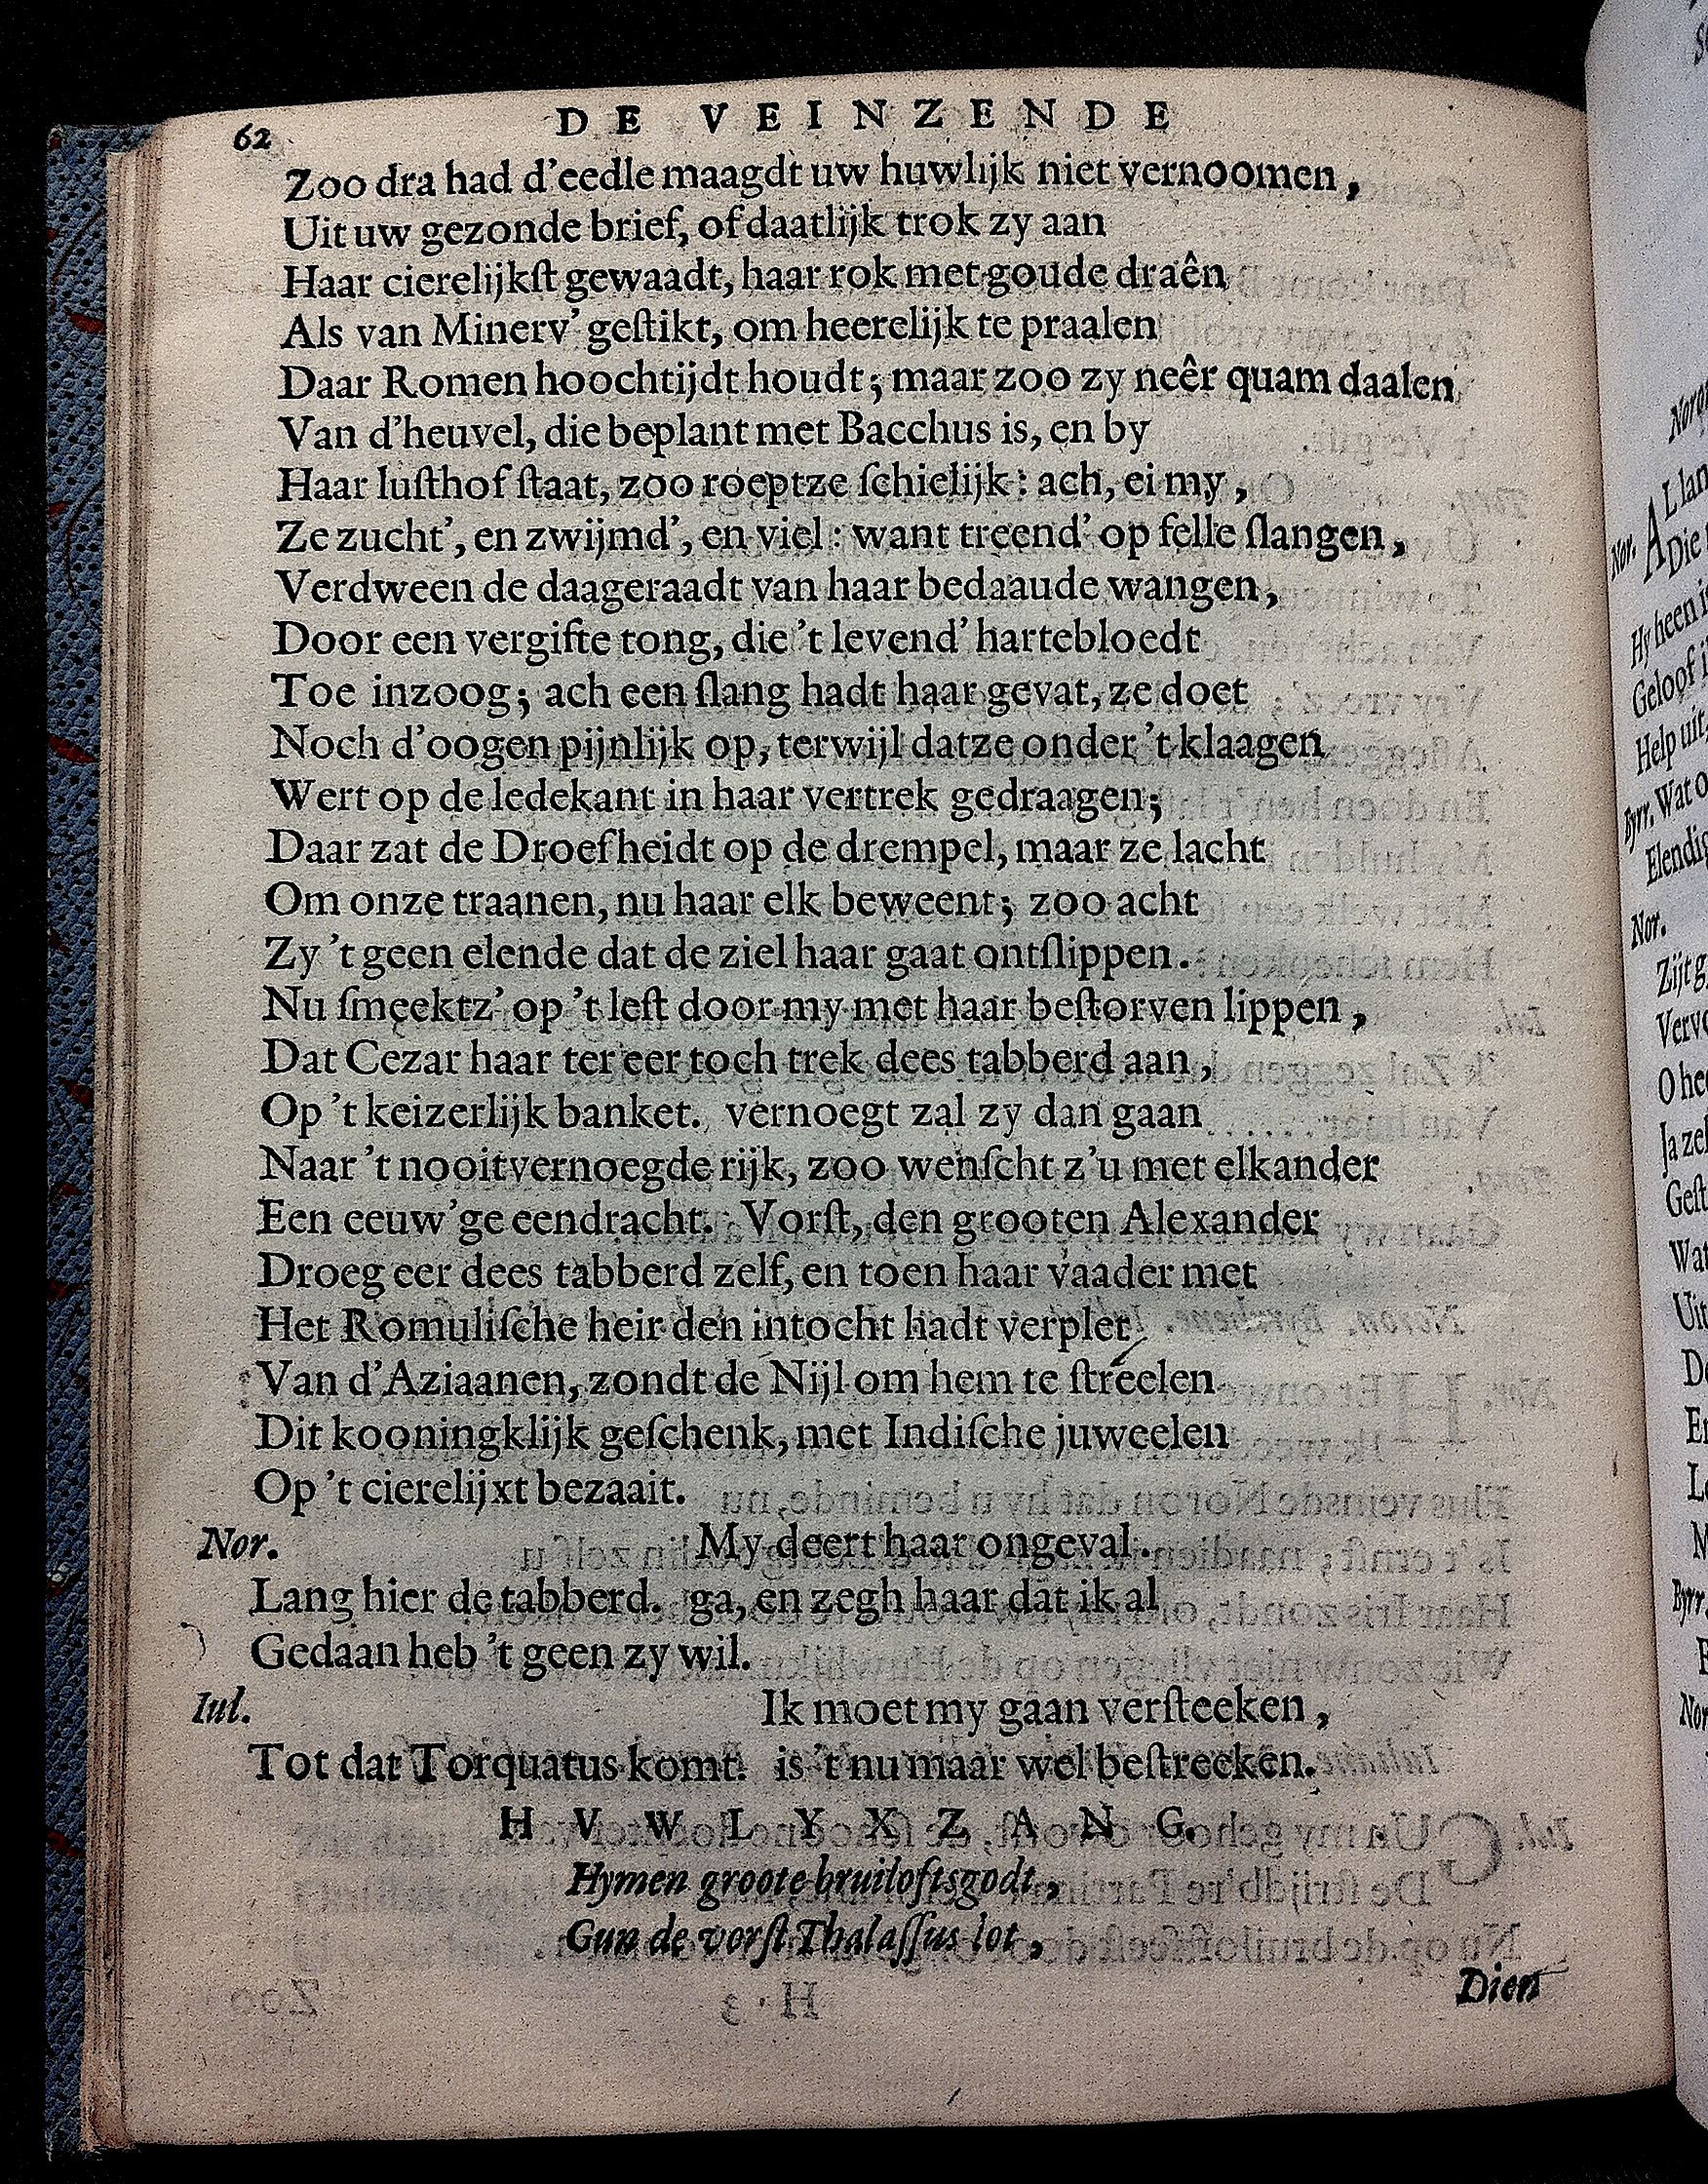 62
DE VEINZENDE
Zoo dra had d'eedle maagdt uw huwlijk niet vernoomen,
Uit uw gezonde brief, of daatlijk trok zy aan
Haar cierelijkſt gewaadt, haar rok met goude draên
Als van Minerv' geſtikt, om heerelijk te praalen
Daar Romen hoochtijdt houdt; maar zoo zy neêr quam daalen
Van d'heuvel, die beplant met Bacchus is, en by
Haar luſthof ſtaat, zoo roeptze ſchielijk: ach, ei my,
Ze zucht', en zwijmd', en viel: want treend' op felle ſlangen,
Verdween de daageraadt van haar bedaaude wangen,
Door een vergifte tong, die 't levend' hartebloedt
Toe inzoog; ach een ſlang hadt haar gevat, ze doet
Noch d'oogen pijnlijk op, terwijl datze onder 't klaagen
Wert op de ledekant in haar vertrek gedraagen;
Daar zat de Droefheidt op de drempel, maar ze lacht
Om onze traanen, nu haar elk beweent; zoo acht
Zy 't geen elende dat de ziel haar gaat ontſlippen.
Nu ſmeektz' op 't leſt door my met haar beſtorven lippen,
Dat Cezar haar ter eer toch trek dees tabberd aan,
Op 't keizerlijk banket. vernoegt zal zy dan gaan
Naar 't nooitvernoegde rijk, zoo wenſcht z'u met elkander
Een eeuw'ge eendracht. Vorſt, den grooten Alexander
Droeg eer dees tabberd zelf, en toen haar vaader met
Het Romuliſche heir den intocht hadt verplet
Van d'Aziaanen, zondt de Nijl om hem te ſtreelen
Dit kooningklijk geſchenk, met Indiſche juweelen
Op 't cierelijxt bezaait.
Nor. My deert haar ongeval.
Lang hier de tabberd. ga, en zegh haar dat ik al
Gedaan heb 't geen zy wil.
Iul. Ik moet my gaan verſteeken,
Tot dat Torquatus komt. is 't nu maar wel beſtreeken.
HVWLYXZANG.
Hymen groote bruiloftsgodt,
Gun de vorſt Thalaſſus lot,
Dien
Nor. AL lan
Die
Hy heen
Geloof
Help uit
Byrr. Wat
Elendig
Nor.
Zijt g
O hee
Ja ze
Geſt
Wat
Nor